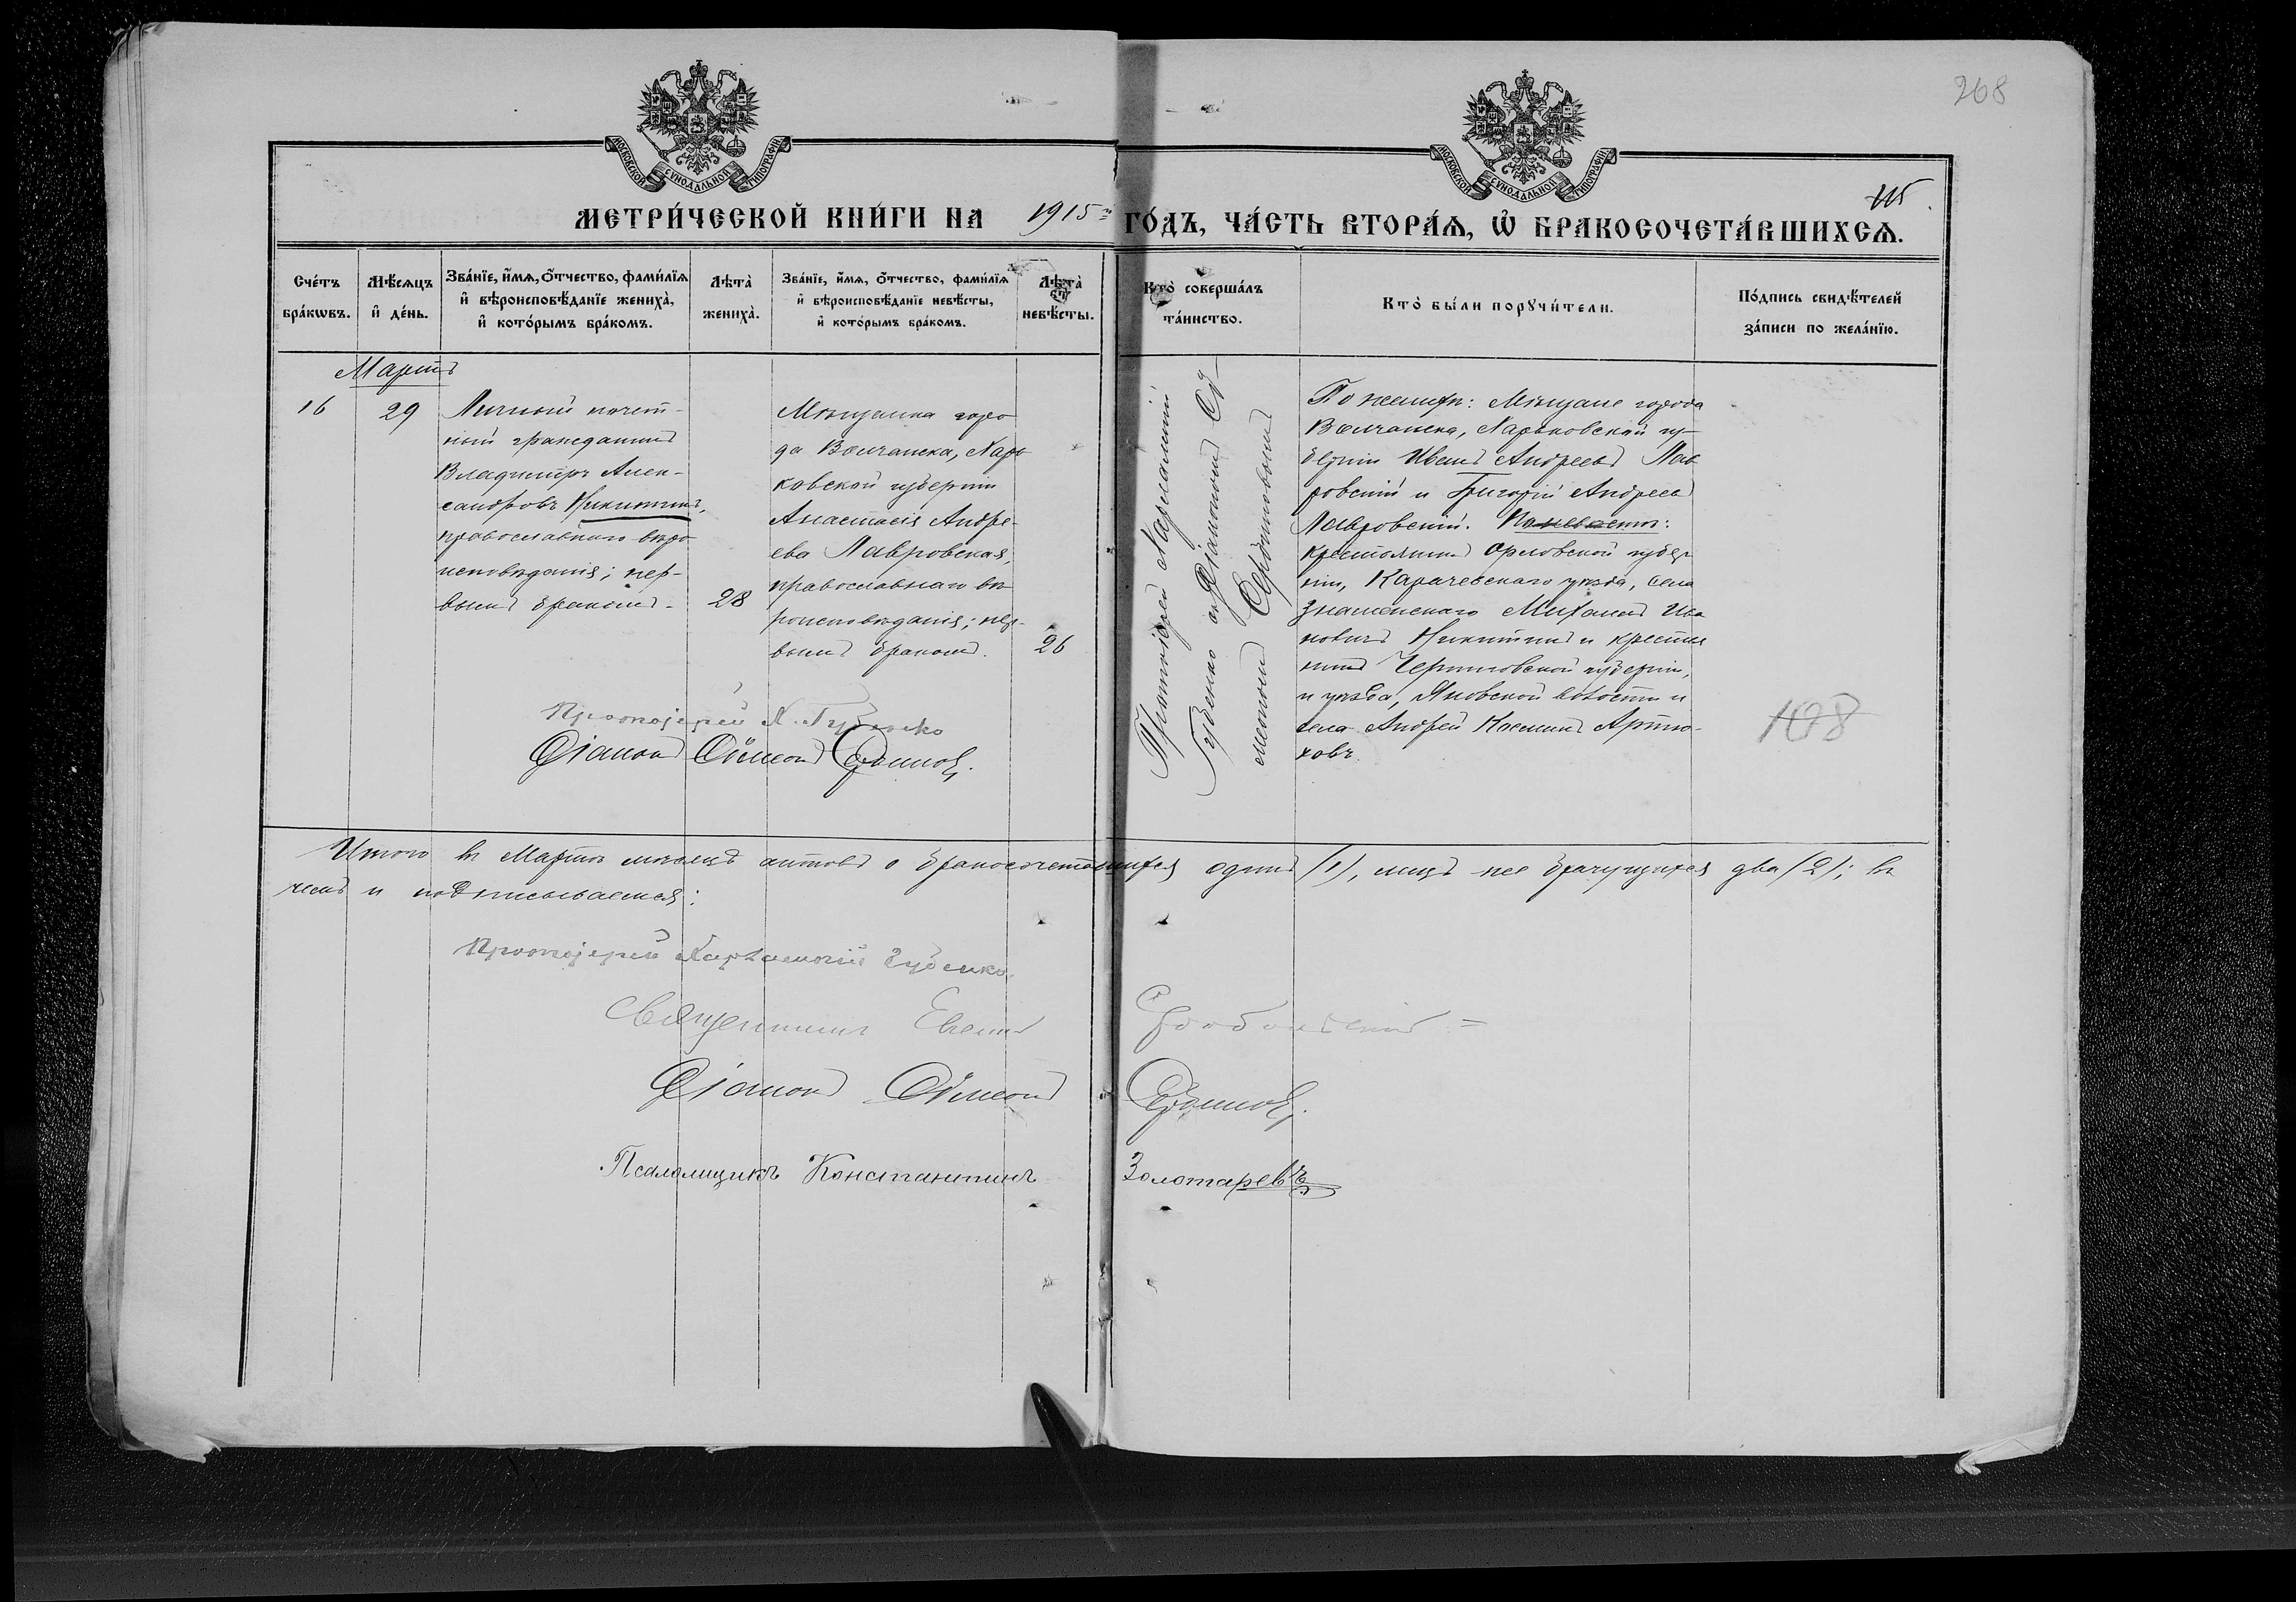 268
МОСКОВСКОЙ СѴНОДАЛЬНОЙ ТИПОГРАФІИ
МОСКОВСКОЙ СѴНОДАЛЬНОЙ ТИПОГРАФІИ
115
МЕТРИ́ЧЕСКОЙ КНИ́ГИ НА 1915 ГО́ДЪ, ЧА́СТЬ ВТОРА́Ѧ, Ѽ БРАКОСОЧЕТА́ВШИХСѦ.
Сче́тъ
бра́кѡвъ.
Мѣ́сѧцъ
и҆ де́нь.
Зва́нїе, и҆́мѧ, ѻ҆́тчество, фами́лїѧ
и҆ вѣроисповѣ́данїе жениха̀,
и҆ кото́рымъ бра́комъ.
Лѣта̀
жениха̀.
Зва́нїе, и҆́мѧ, ѻ҆́тчество, фами́лїѧ
и҆ вѣроисповѣ́данїе невѣ́сты,
и҆ кото́рымъ бра́комъ.
Лѣта̀
невѣ́сты.
Кто̀ соверша́лъ
та́инство.
Кто̀ бы́ли порꙋчи́тели.
По́дпись свидѣ́телей
за́писи по жела́нїю.
Мартъ
16
29
Личный почет-
ный гражданинъ
Владимiръ Алек-
сандровъ Никитинъ,
православнаго вѣро
исповѣданія; пер-
вымъ бракомъ.
28
Мѣщанка горо
да Волчанска, Харь
ковской губерніи
Анастасія Андре-
ева Лавровская,
православнаго вѣ
роисповѣданія; пер-
вымъ бракомъ.
26
Протоіерей Харлампій
Губенко съ Діакономъ Сѵ-
меономъ Сердюковымъ
По женихѣ: Мѣщане города
Волчанска, Харьковской гу-
берніи Иванъ Андреевъ Лав
ровскій и Григорій Андреевъ
Лавровскій. По невѣстѣ:
крестьянинъ Орловской губер
ніи, Карачевскаго уѣзда, села
Знаменскаго Михаилъ Ива
новичъ Никитинъ и крестья
нинъ Черниговской губерніи,
и уѣзда, Яновской волости и
села Андрей Косминъ Артю-
ховъ.
108
Протоіерей Х. Губенко
Діаконъ Сѵмеонъ
Итого въ Мартѣ мѣсяцѣ актовъ о бракосочетавшихся одинъ (1), лицъ же брачущихся два (2); въ
чемъ и подписываемся:
Протоіерей Харлампій Губенко
Священникъ Евгеній
Діаконъ Сѵмеонъ
Псаломщикъ Константинъ Золотаревъ